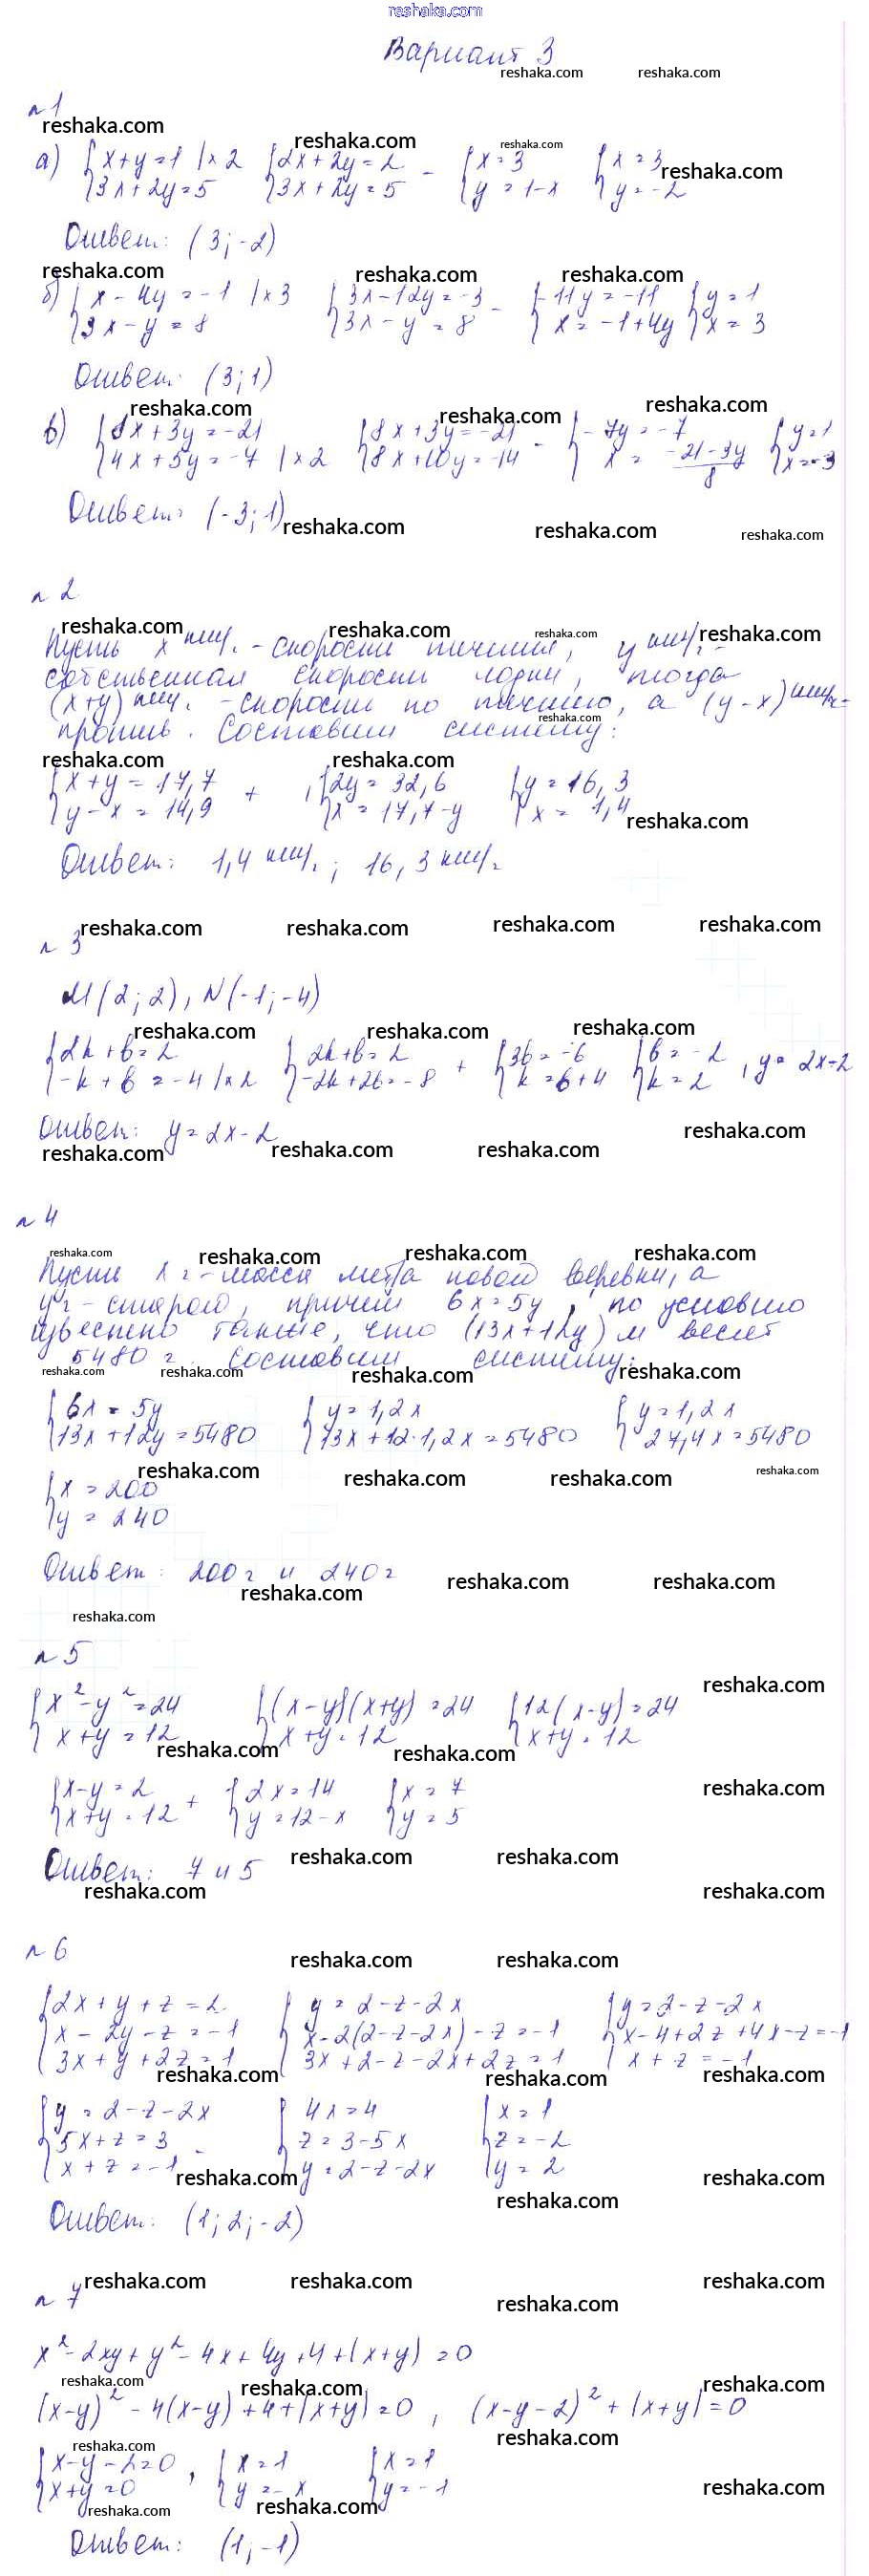 reshaka.com
Вариант 3
reshaka.com reshaka.com
№1
reshaka.com
а) {x+y=1 |×2 {2x+2y=2 {x=3 {x=3
{3x+2y=5 {3x+2y=5 - {y=1-x {y=-2
reshaka.com reshaka.com reshaka.com
Ответ: (3; -2)
reshaka.com reshaka.com reshaka.com
б) {x-4y=-1 |×3 {3x-12y=-3 {-11y=-11 {y=1
{3x-y=8 {3x-y=8 - {x=-1+4y {x=3
Ответ: (3; 1)
reshaka.com reshaka.com reshaka.com
в) {8x+3y=-21 {8x+3y=-21 - {-7y=-7 {y=1
{4x+5y=-7 |×2 {8x+10y=-14 {x=(-21-3y)/8 {x=-3
Ответ: (-3; 1)
reshaka.com reshaka.com reshaka.com
№2
reshaka.com reshaka.com reshaka.com reshaka.com
Пусть x км/ч. - скорость течения, y км/ч. -
собственная скорость лодки, тогда
(x+y) км/ч. - скорость по течению, а (y-x) км/ч -
reshaka.com
против. Составим систему:
reshaka.com reshaka.com
{x+y=17,7 {2y=32,6 {y=16,3
{y-x=14,9 + {x=17,7-y {x=1,4
reshaka.com
Ответ: 1,4 км/ч.; 16,3 км/ч.
reshaka.com reshaka.com reshaka.com reshaka.com
№3
M(2; 2), N(-1; -4)
reshaka.com reshaka.com reshaka.com
{2k+b=2 {2k+b=2 {3b=-6 {b=-2
{-k+b=-4 |×2 {-2k+2b=-8 + {k=b+4 {k=2 , y=2x-2
Ответ: y=2x-2
reshaka.com reshaka.com reshaka.com reshaka.com
№4
reshaka.com reshaka.com reshaka.com reshaka.com
Пусть x г - масса метра новой веревки, а
y г - старой, причем 6x=5y, по условию
известно также, что (13x+12y) м весят
5480 г. Составим систему:
reshaka.com reshaka.com reshaka.com reshaka.com
{6x=5y {y=1,2x {y=1,2x
{13x+12y=5480 {13x+12·1,2x=5480 {27,4x=5480
reshaka.com reshaka.com reshaka.com reshaka.com
{x=200
{y=240
Ответ: 200 г и 240 г
reshaka.com reshaka.com reshaka.com
reshaka.com
№5
reshaka.com
{x²-y²=24 {(x-y)(x+y)=24 {12(x-y)=24
{x+y=12 {x+y=12 {x+y=12
reshaka.com reshaka.com
{x-y=2 {2x=14 {x=7
{x+y=12 + {y=12-x {y=5
reshaka.com
Ответ: 7 и 5
reshaka.com reshaka.com
reshaka.com reshaka.com
№6
reshaka.com reshaka.com
{2x+y+z=2 {y=2-z-2x {y=2-z-2x
{x-2y-z=-1 {x-2(2-z-2x)-z=-1 {x-4+2z+4x-z=-1
{3x+y+2z=1 {3x+2-z-2x+2z=1 {x+z=-1
reshaka.com reshaka.com reshaka.com
{y=2-z-2x {4x=4 {x=1
{5x+z=3 - {z=3-5x {z=-2
{x+z=-1 {y=2-z-2x {y=2
reshaka.com reshaka.com
reshaka.com
Ответ: (1; 2; -2)
reshaka.com reshaka.com reshaka.com
№7
reshaka.com
x²-2xy+y²-4x+4y+4+|x+y|=0
reshaka.com reshaka.com reshaka.com
(x-y)²-4(x-y)+4+|x+y|=0, (x-y-2)²+|x+y|=0
reshaka.com reshaka.com
{x-y-2=0 {x=1 {x=1
{x+y=0 , {y=-x {y=-1
reshaka.com
reshaka.com reshaka.com
Ответ: (1; -1)